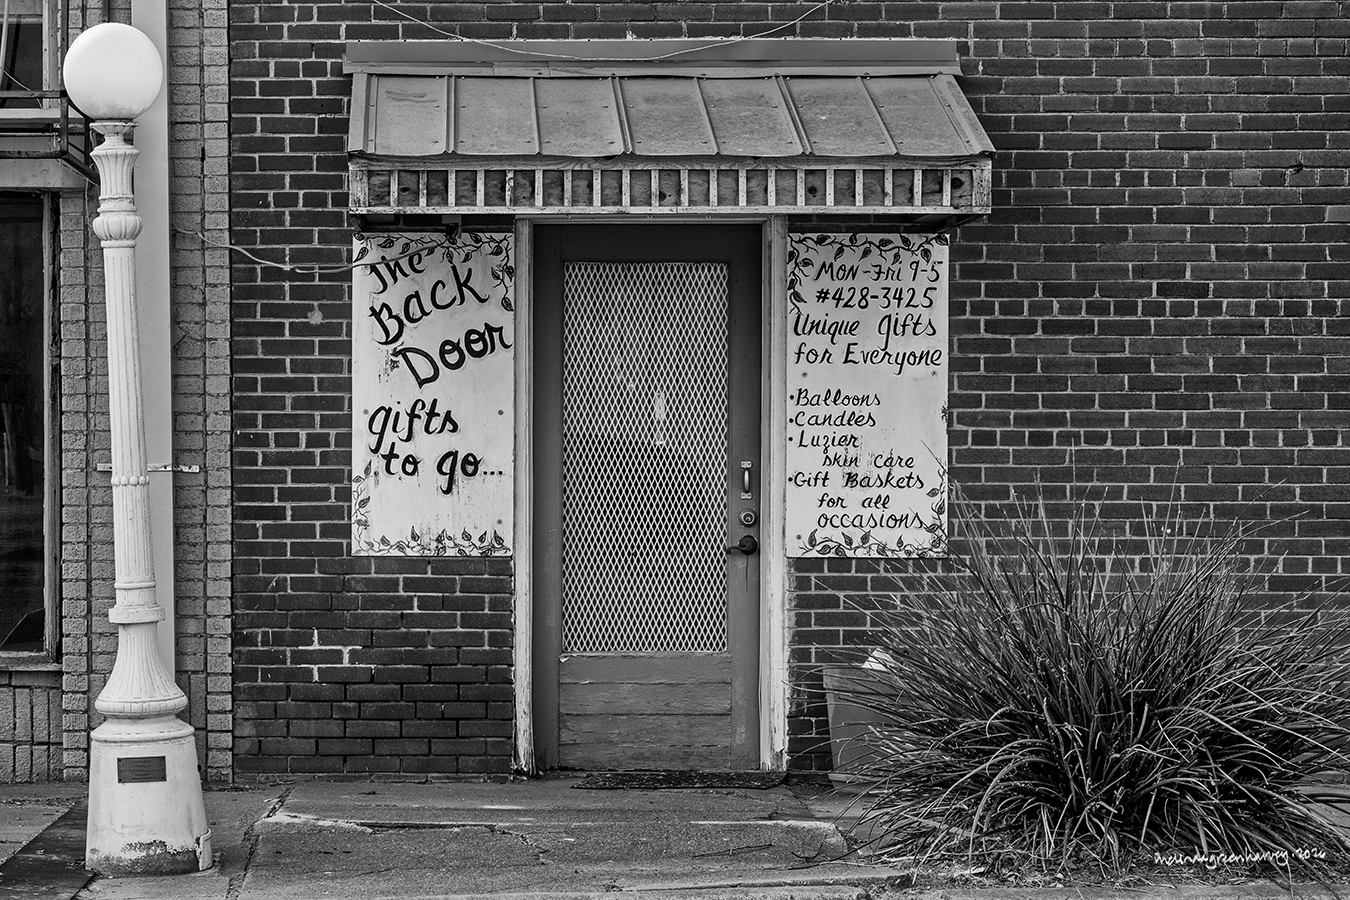 The
Back
Door
gifts
to go...
Mon-Fri 9-5
#428-3425
Unique gifts
for Everyone
•Balloons
•Candles
•Luzier
skin care
•Gift Baskets
for all
occasions
melindagreenharvey.2026